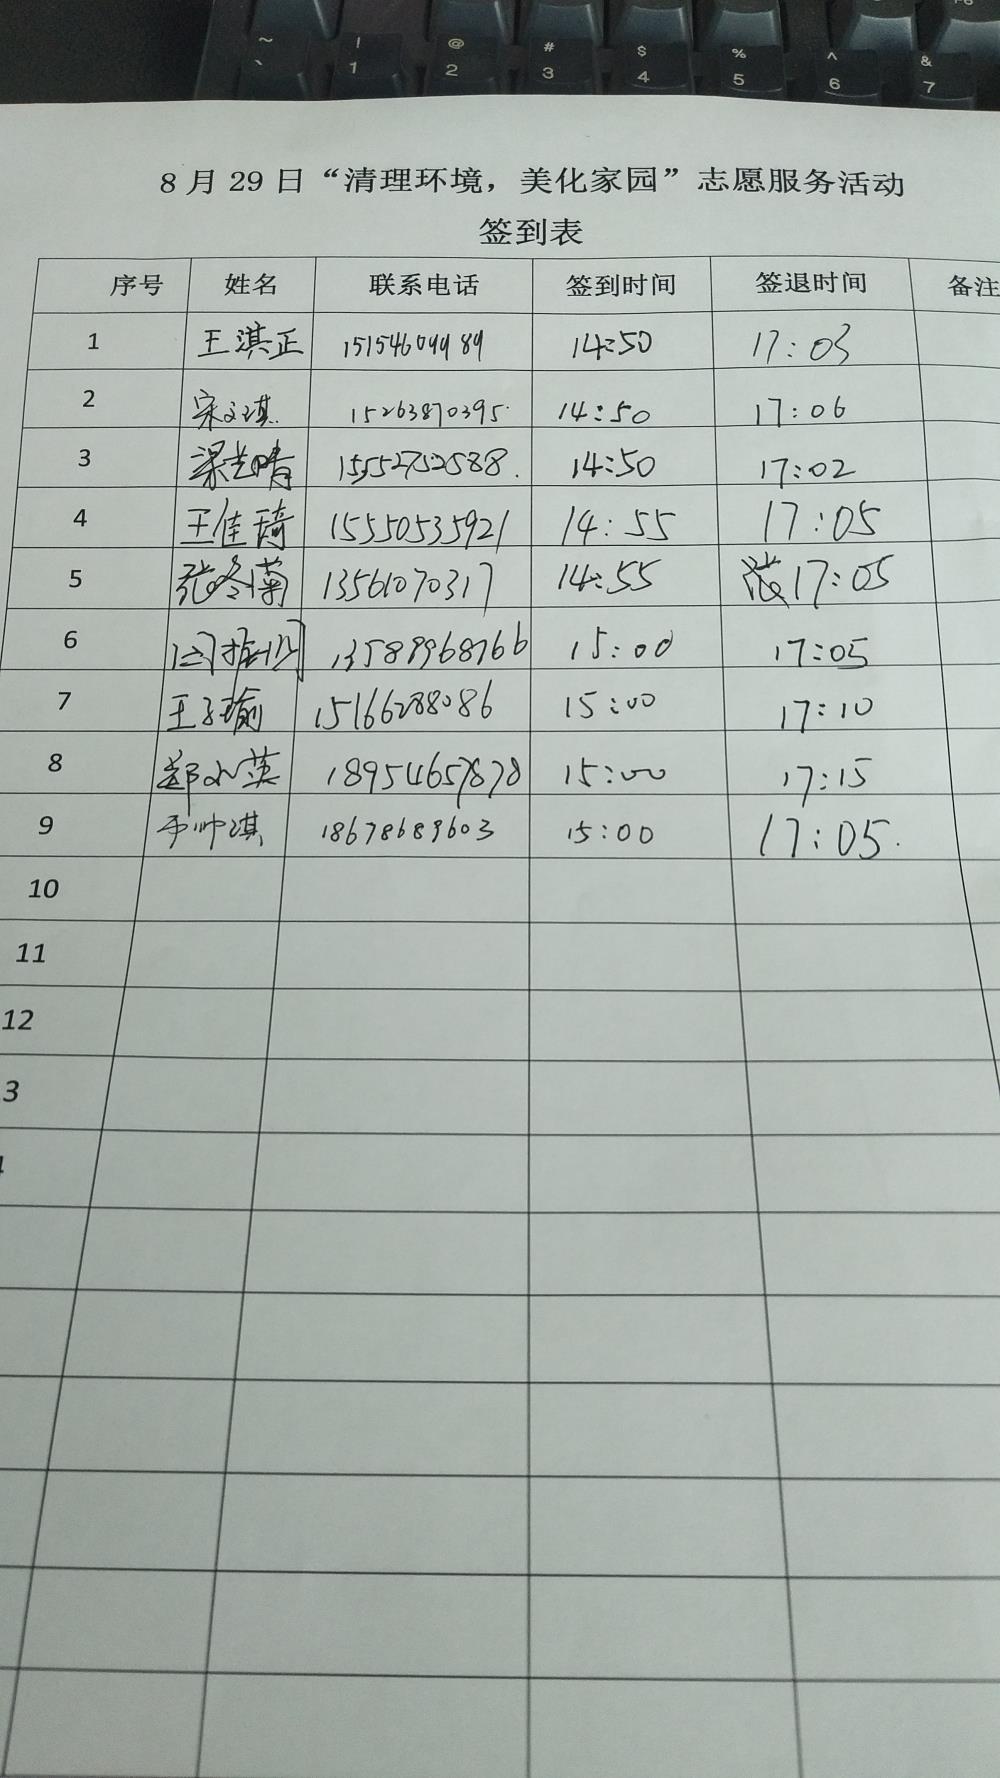 ~ ! @ # $ % ^ &
` 1 2 3 4 5 6 7
8月29日“清理环境，美化家园”志愿服务活动
签到表
序号 姓名 联系电话 签到时间 签退时间 备注
1 王淇正 15154609989 14:50 17:03
2 宋文琪 15263870395 14:50 17:06
3 梁 晴 15552752588 14:50 17:02
4 王佳琦 15550535921 14:55 17:05
5 张冬菊 13561070317 14:55 17:05
6 13589968766 15:00 17:05
7 王子瑜 15166288086 15:00 17:10
8 郑 英 18954657878 15:00 17:15
9 帅琪 18678689603 15:00 17:05
10
11
12
3